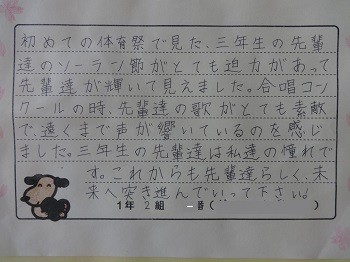 初めての体育祭で見た、三年生の先輩
達のソーラン節がとても迫力があって
先輩達が輝いて見えました。合唱コン
クールの時、先輩達の歌がとても素敵
で、遠くまで声が響いているのを感じ
ました。三年生の先輩達は私達の憧れで
す。これからも先輩達らしく、未
来へ突き進んでいって下さい。
1年 2組 一番( )